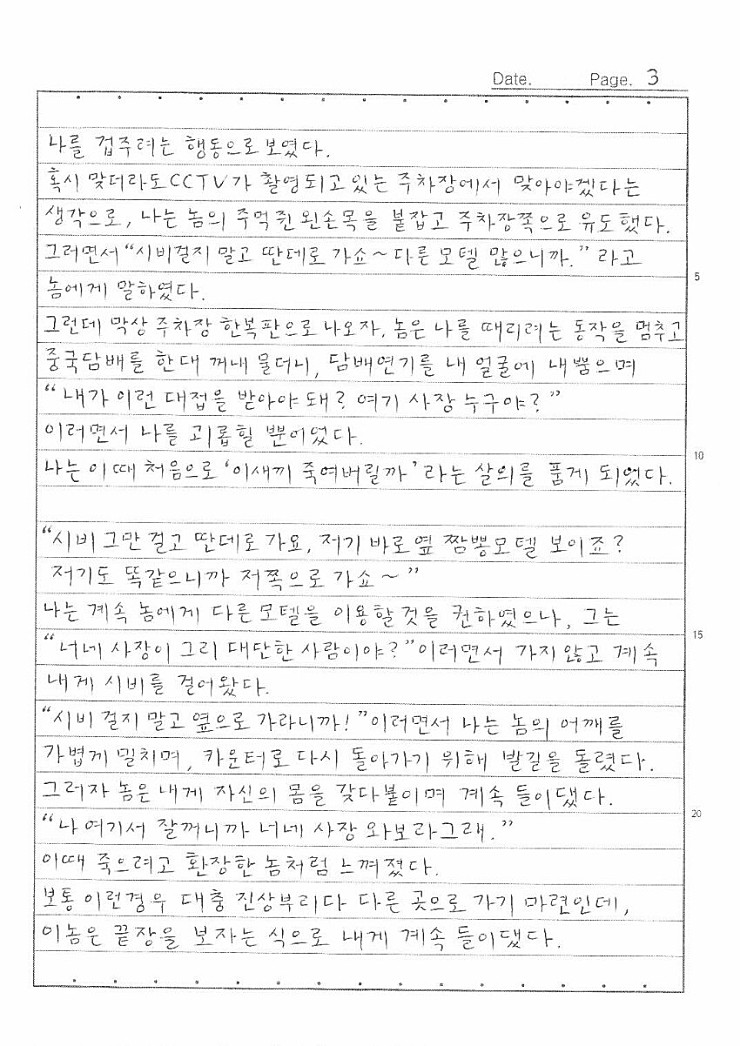 Date. Page. 3
나를 겁주려는 행동으로 보였다.
혹시 맞더라도 CCTV가 촬영되고 있는 주차장에서 맞아야겠다는
생각으로, 나는 놈의 주먹쥔 왼손목을 붙잡고 주차장쪽으로 유도했다.
그러면서 "시비걸지 말고 딴데로 가쇼~ 다른 모텔 많으니까." 라고
5
놈에게 말하였다.
그런데 막상 주차장 한복판으로 나오자, 놈은 나를 때리려는 동작을 멈추고
중국담배를 한대 꺼내 물더니, 담배연기를 내 얼굴에 내뿜으며
"내가 이런 대접을 받아야 돼? 여기 사장 누구야?"
이러면서 나를 괴롭힐 뿐이었다.
10
나는 이때 처음으로 '이새끼 죽여버릴까' 라는 살의를 품게 되었다.
"시비 그만 걸고 딴데로 가요, 저기 바로 옆 짬뽕모텔 보이죠?
저기도 똑같으니까 저쪽으로 가쇼~"
나는 계속 놈에게 다른 모텔을 이용할 것을 권하였으나, 그는
15
"너네 사장이 그리 대단한 사람이야?" 이러면서 가지 않고 계속
내게 시비를 걸어왔다.
"시비 걸지 말고 옆으로 가라니까!" 이러면서 나는 놈의 어깨를
가볍게 밀치며, 카운터로 다시 돌아가기 위해 발길을 돌렸다.
그러자 놈은 내게 자신의 몸을 갖다붙이며 계속 들이댔다.
20
"나 여기서 잘꺼니까 너네 사장 와보라그래."
이때 죽으려고 환장한 놈처럼 느껴졌다.
보통 이런경우 대충 진상부리다 다른 곳으로 가기 마련인데,
이놈은 끝장을 보자는 식으로 내게 계속 들이댔다.